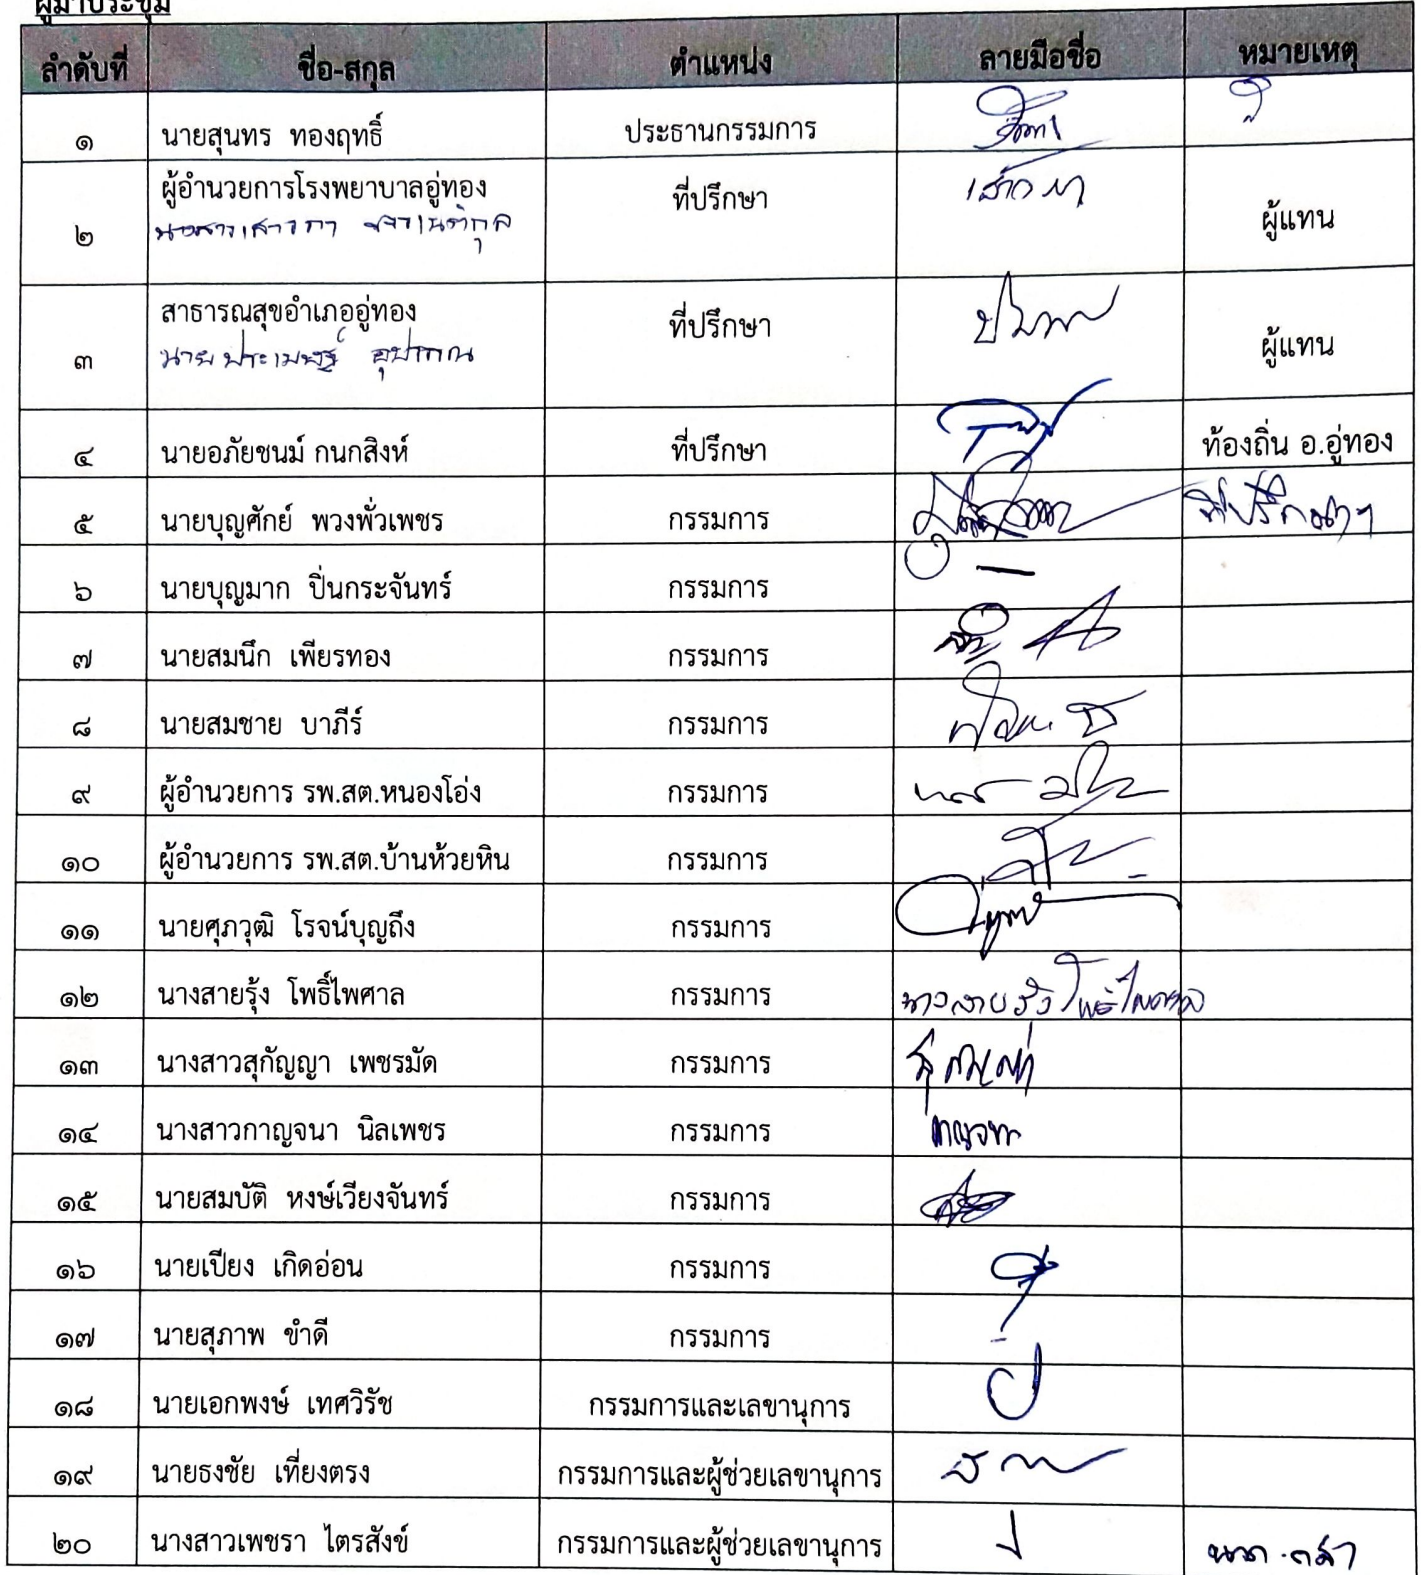 ผู้มาประชุม
ลำดับที่ ชื่อ-สกุล ตำแหน่ง ลายมือชื่อ หมายเหตุ
๑ นายสุนทร ทองฤทธิ์ ประธานกรรมการ
๒ ผู้อำนวยการโรงพยาบาลอู่ทอง ที่ปรึกษา ผู้แทน
นางสาวเสาวภา
๓ สาธารณสุขอำเภออู่ทอง ที่ปรึกษา ผู้แทน
นายประเมษฐ์
๔ นายอภัยชนม์ กนกสิงห์ ที่ปรึกษา ท้องถิ่น อ.อู่ทอง
๕ นายบุญศักย์ พวงพั่วเพชร กรรมการ ที่ปรึกษาฯ
๖ นายบุญมาก ปิ่นกระจันทร์ กรรมการ –
๗ นายสมนึก เพียรทอง กรรมการ
๘ นายสมชาย บาภีร์ กรรมการ
๙ ผู้อำนวยการ รพ.สต.หนองโอ่ง กรรมการ
๑๐ ผู้อำนวยการ รพ.สต.บ้านห้วยหิน กรรมการ
๑๑ นายศุภวุฒิ โรจน์บุญถึง กรรมการ
๑๒ นางสายรุ้ง โพธิ์ไพศาล กรรมการ นางสายรุ้ง โพธิ์ไพศาล
๑๓ นางสาวสุกัญญา เพชรมัด กรรมการ สุกัญญา
๑๔ นางสาวกาญจนา นิลเพชร กรรมการ กาญจนา
๑๕ นายสมบัติ หงษ์เวียงจันทร์ กรรมการ
๑๖ นายเปียง เกิดอ่อน กรรมการ
๑๗ นายสุภาพ ขำดี กรรมการ
๑๘ นายเอกพงษ์ เทศวิรัช กรรมการและเลขานุการ
๑๙ นายธงชัย เที่ยงตรง กรรมการและผู้ช่วยเลขานุการ
๒๐ นางสาวเพชรา ไตรสังข์ กรรมการและผู้ช่วยเลขานุการ